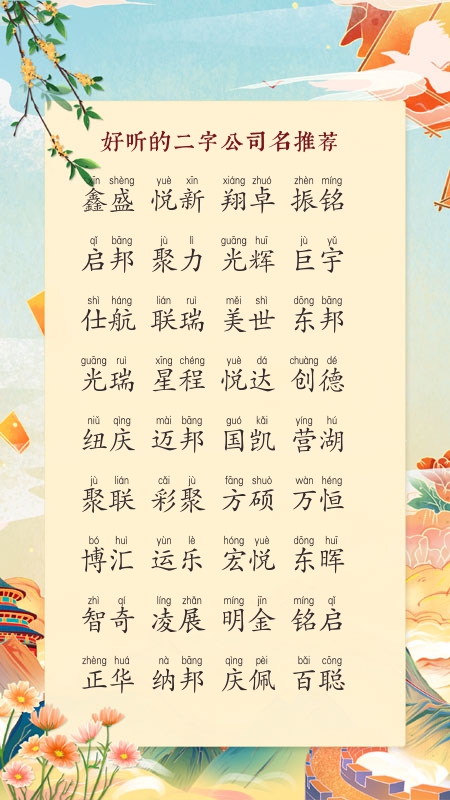 好听的二字公司名推荐
xīn shèng yuè xīn xiáng zhuó zhèn míng
鑫盛 悦新 翔卓 振铭
qǐ bāng jù lì guāng huī jù yǔ
启邦 聚力 光辉 巨宇
shì háng lián ruì měi shì dōng bāng
仕航 联瑞 美世 东邦
guāng ruì xīng chéng yuè dá chuàng dé
光瑞 星程 悦达 创德
niǔ qìng mài bāng guó kǎi yíng hú
纽庆 迈邦 国凯 营湖
jù lián cǎi jù fāng shuò wàn héng
聚联 彩聚 方硕 万恒
bó huì yùn lè hóng yuè dōng huī
博汇 运乐 宏悦 东晖
zhì qí líng zhǎn míng jīn míng qǐ
智奇 凌展 明金 铭启
zhèng huá nà bāng qìng pèi bǎi cōng
正华 纳邦 庆佩 百聪